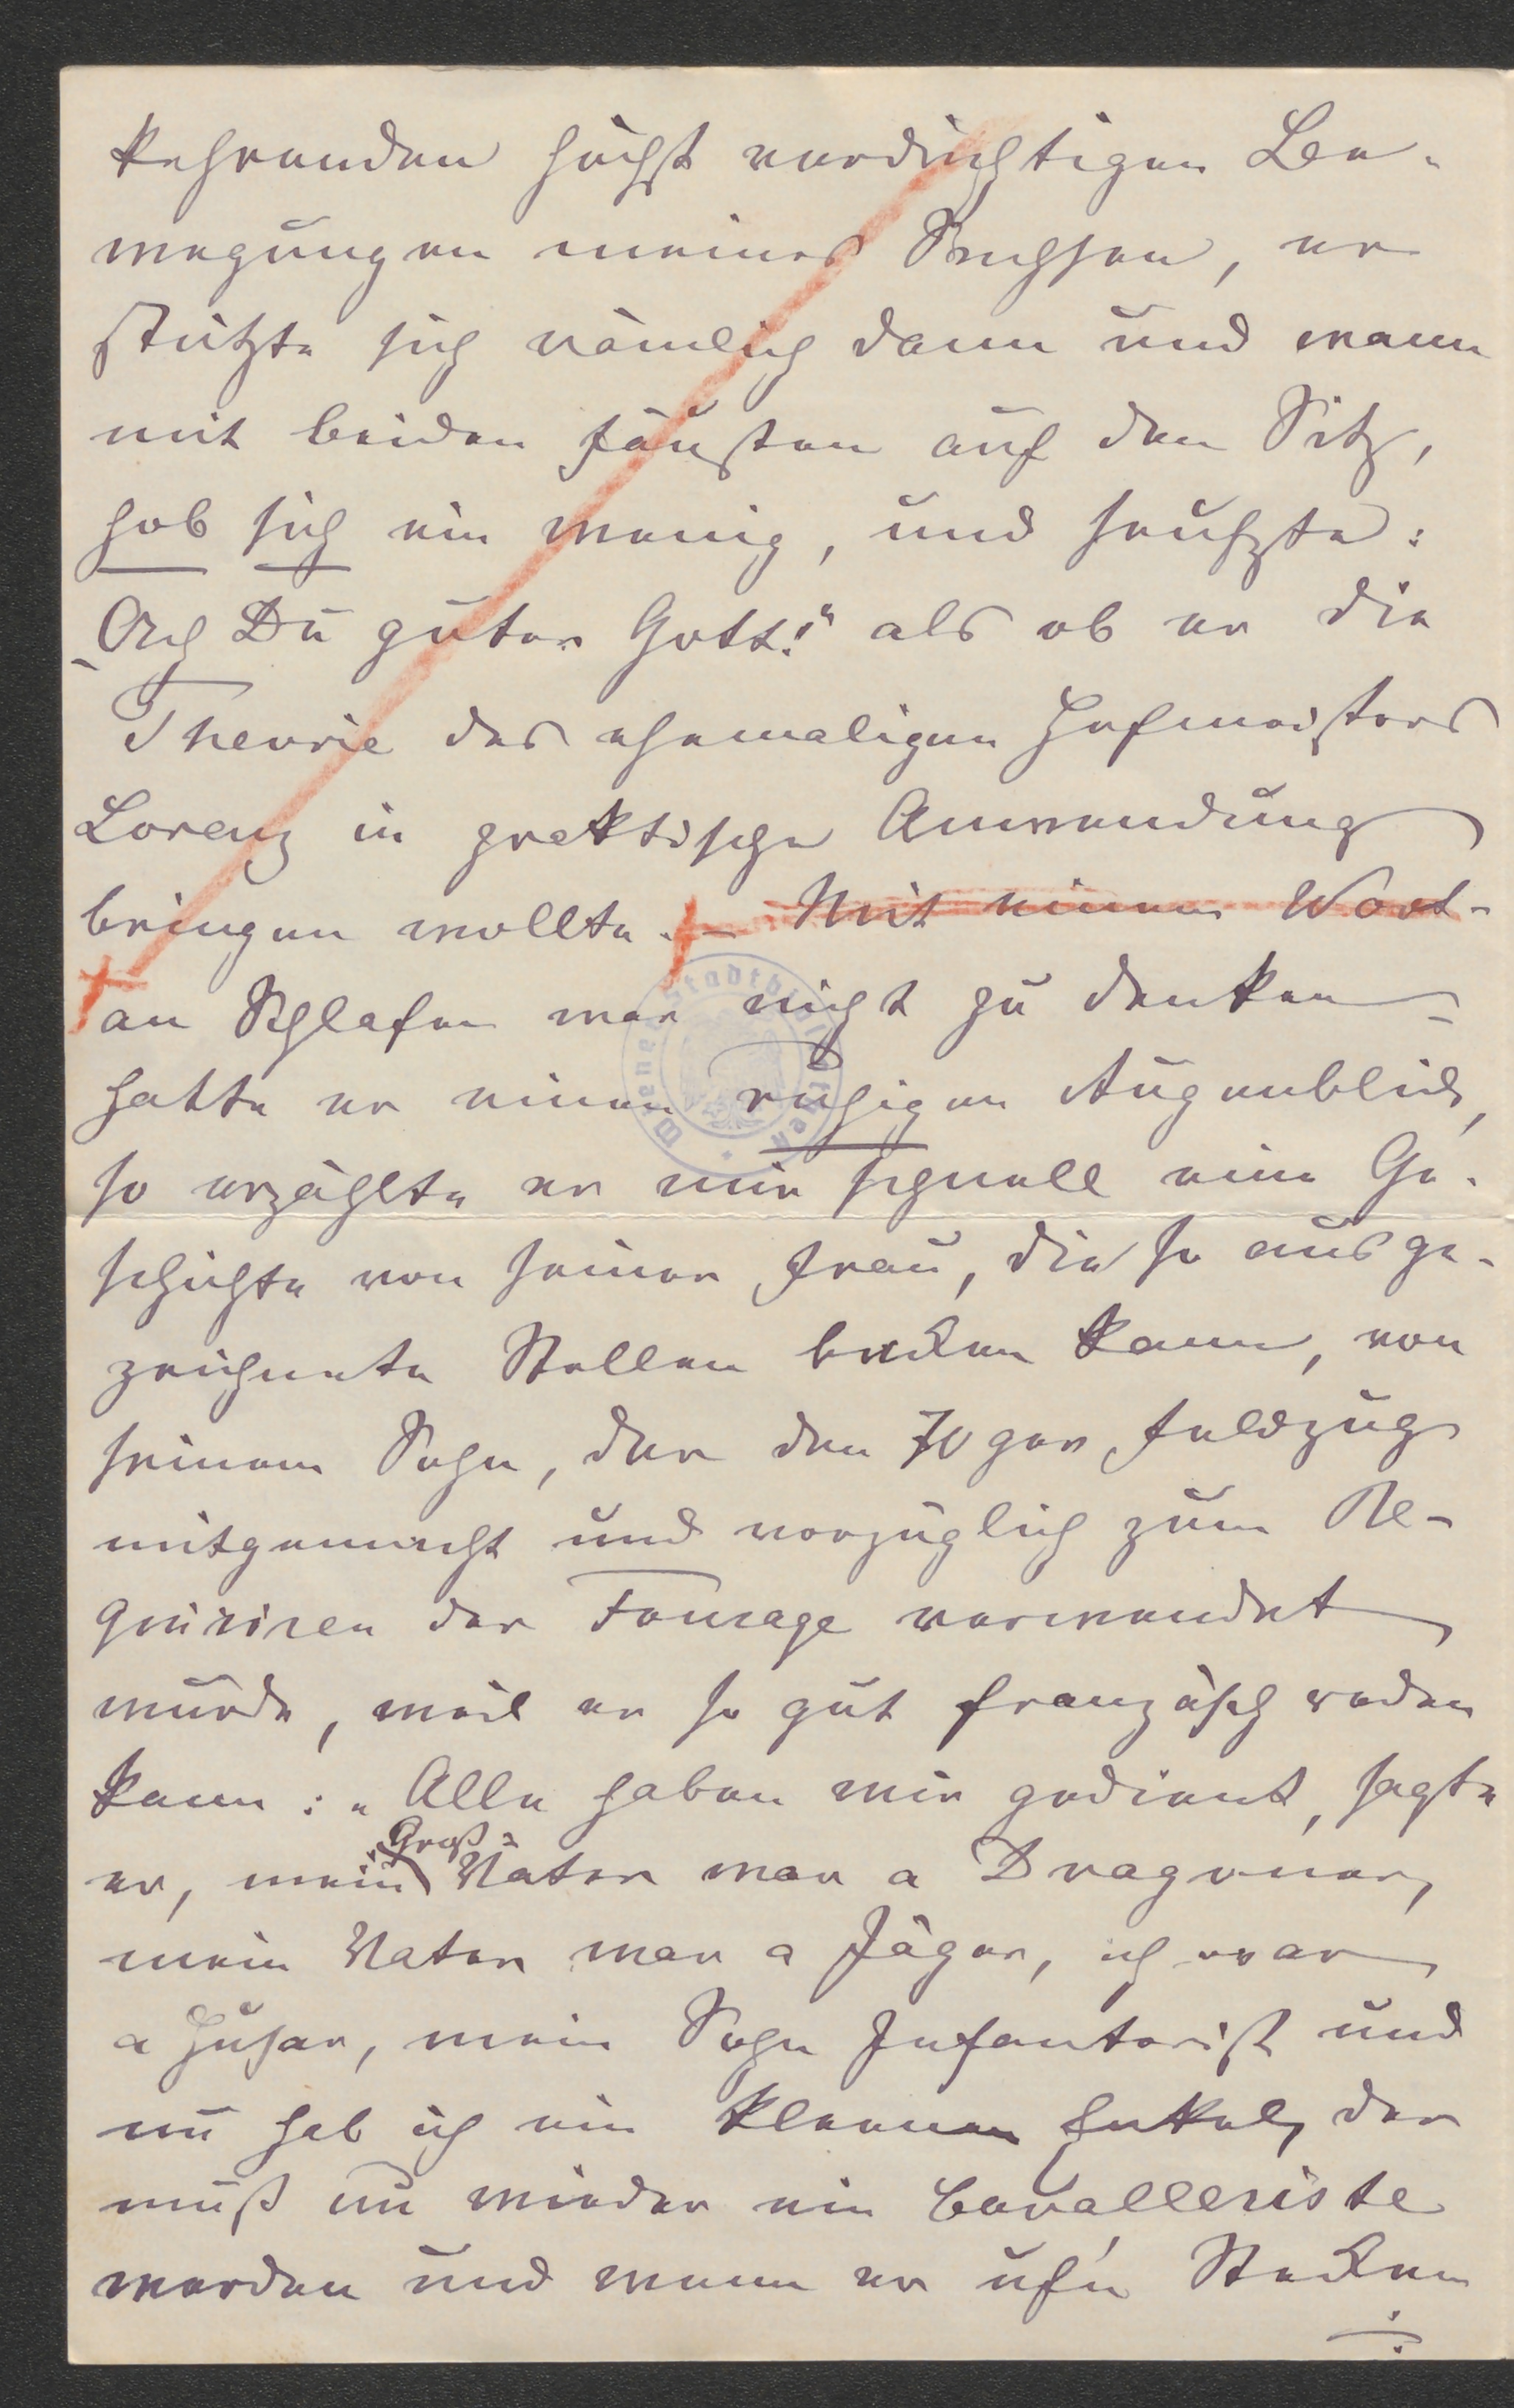 kehrenden höchst verdächtigen Be-
wegungen meines Sachsen, er
stützte sich nämlich dann und wann
mit beiden Fäusten auf den Sitz,
hob sich ein wenig, und seufzte:
"Ach Du guter Gott!" als ob er die
Theorie des ehemaligen Hofmeisters
Lorenz in praktische Anwendung
bringen wollte. – Mit einem Wort –
an Schlafen war nicht zu denken –
hatte er einen ruhigen Augenblick,
so erzählte er mir schnell eine Ge-
schichte von seiner Frau, die so ausge-
zeichnete Stollen backen kann, von
seinem Sohn, der den 70ger Feldzug
mitgemacht und vorzüglich zum Re-
quiriren der Fourage verwendet
wurde, weil er so gut französch reden
kann: "Alle haben wir gedient, sagte
er, mein Groß-Vater war a Dragoner,
mein Vater war a Jäger, ich war
a Husar, mein Sohn Infanterist und
nu hab ich ein kleenen Enkel, der
muß nu wieder ein Cavalleriste
werden und wenn er uf'n Stecken
Wiener Stadtbibliothek